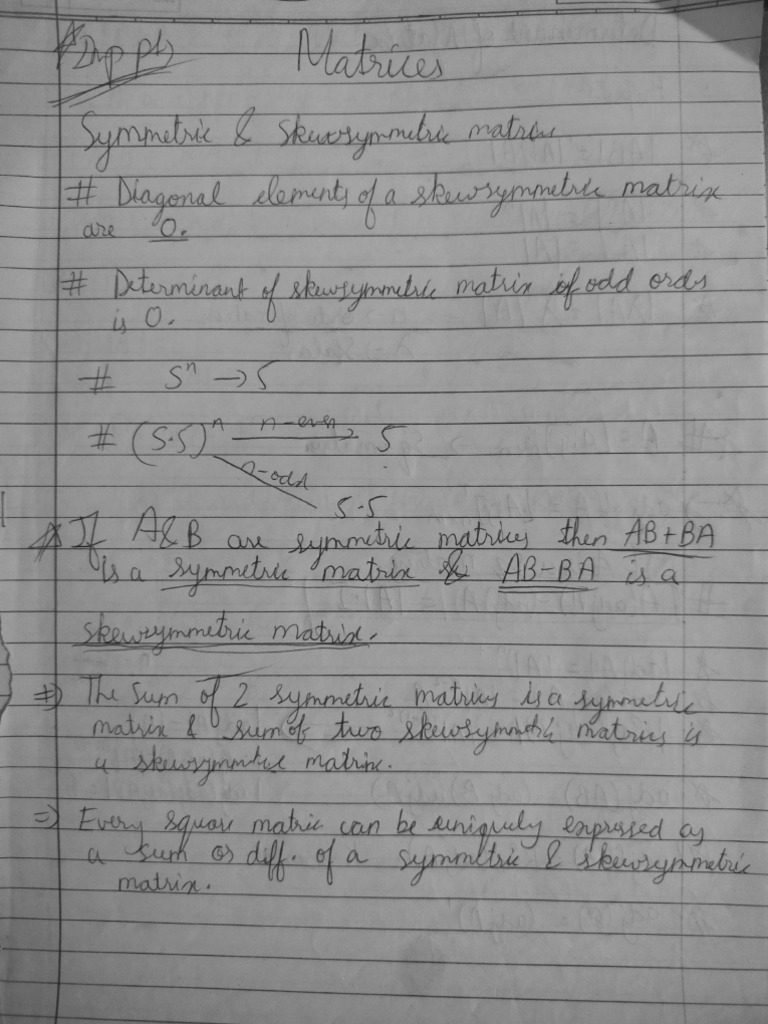 # Imp pts Matrices
Symmetric & Skewsymmetric matrix
# Diagonal elements of a skewsymmetric matrix
are 0.
# Determinant of skewsymmetric matrix of odd order
is 0.
# Sⁿ → S
# (S·S)ⁿ n-even → S
n-odd
S·S
# If A&B are symmetric matrices then AB+BA
is a symmetric matrix & AB-BA is a
skewsymmetric matrix.
=> The sum of 2 symmetric matrices is a symmetric
matrix & sum of two skewsymmetric matrices is
a skewsymmetric matrix.
=> Every square matrix can be uniquely expressed as
a sum or diff. of a symmetric & skewsymmetric
matrix.